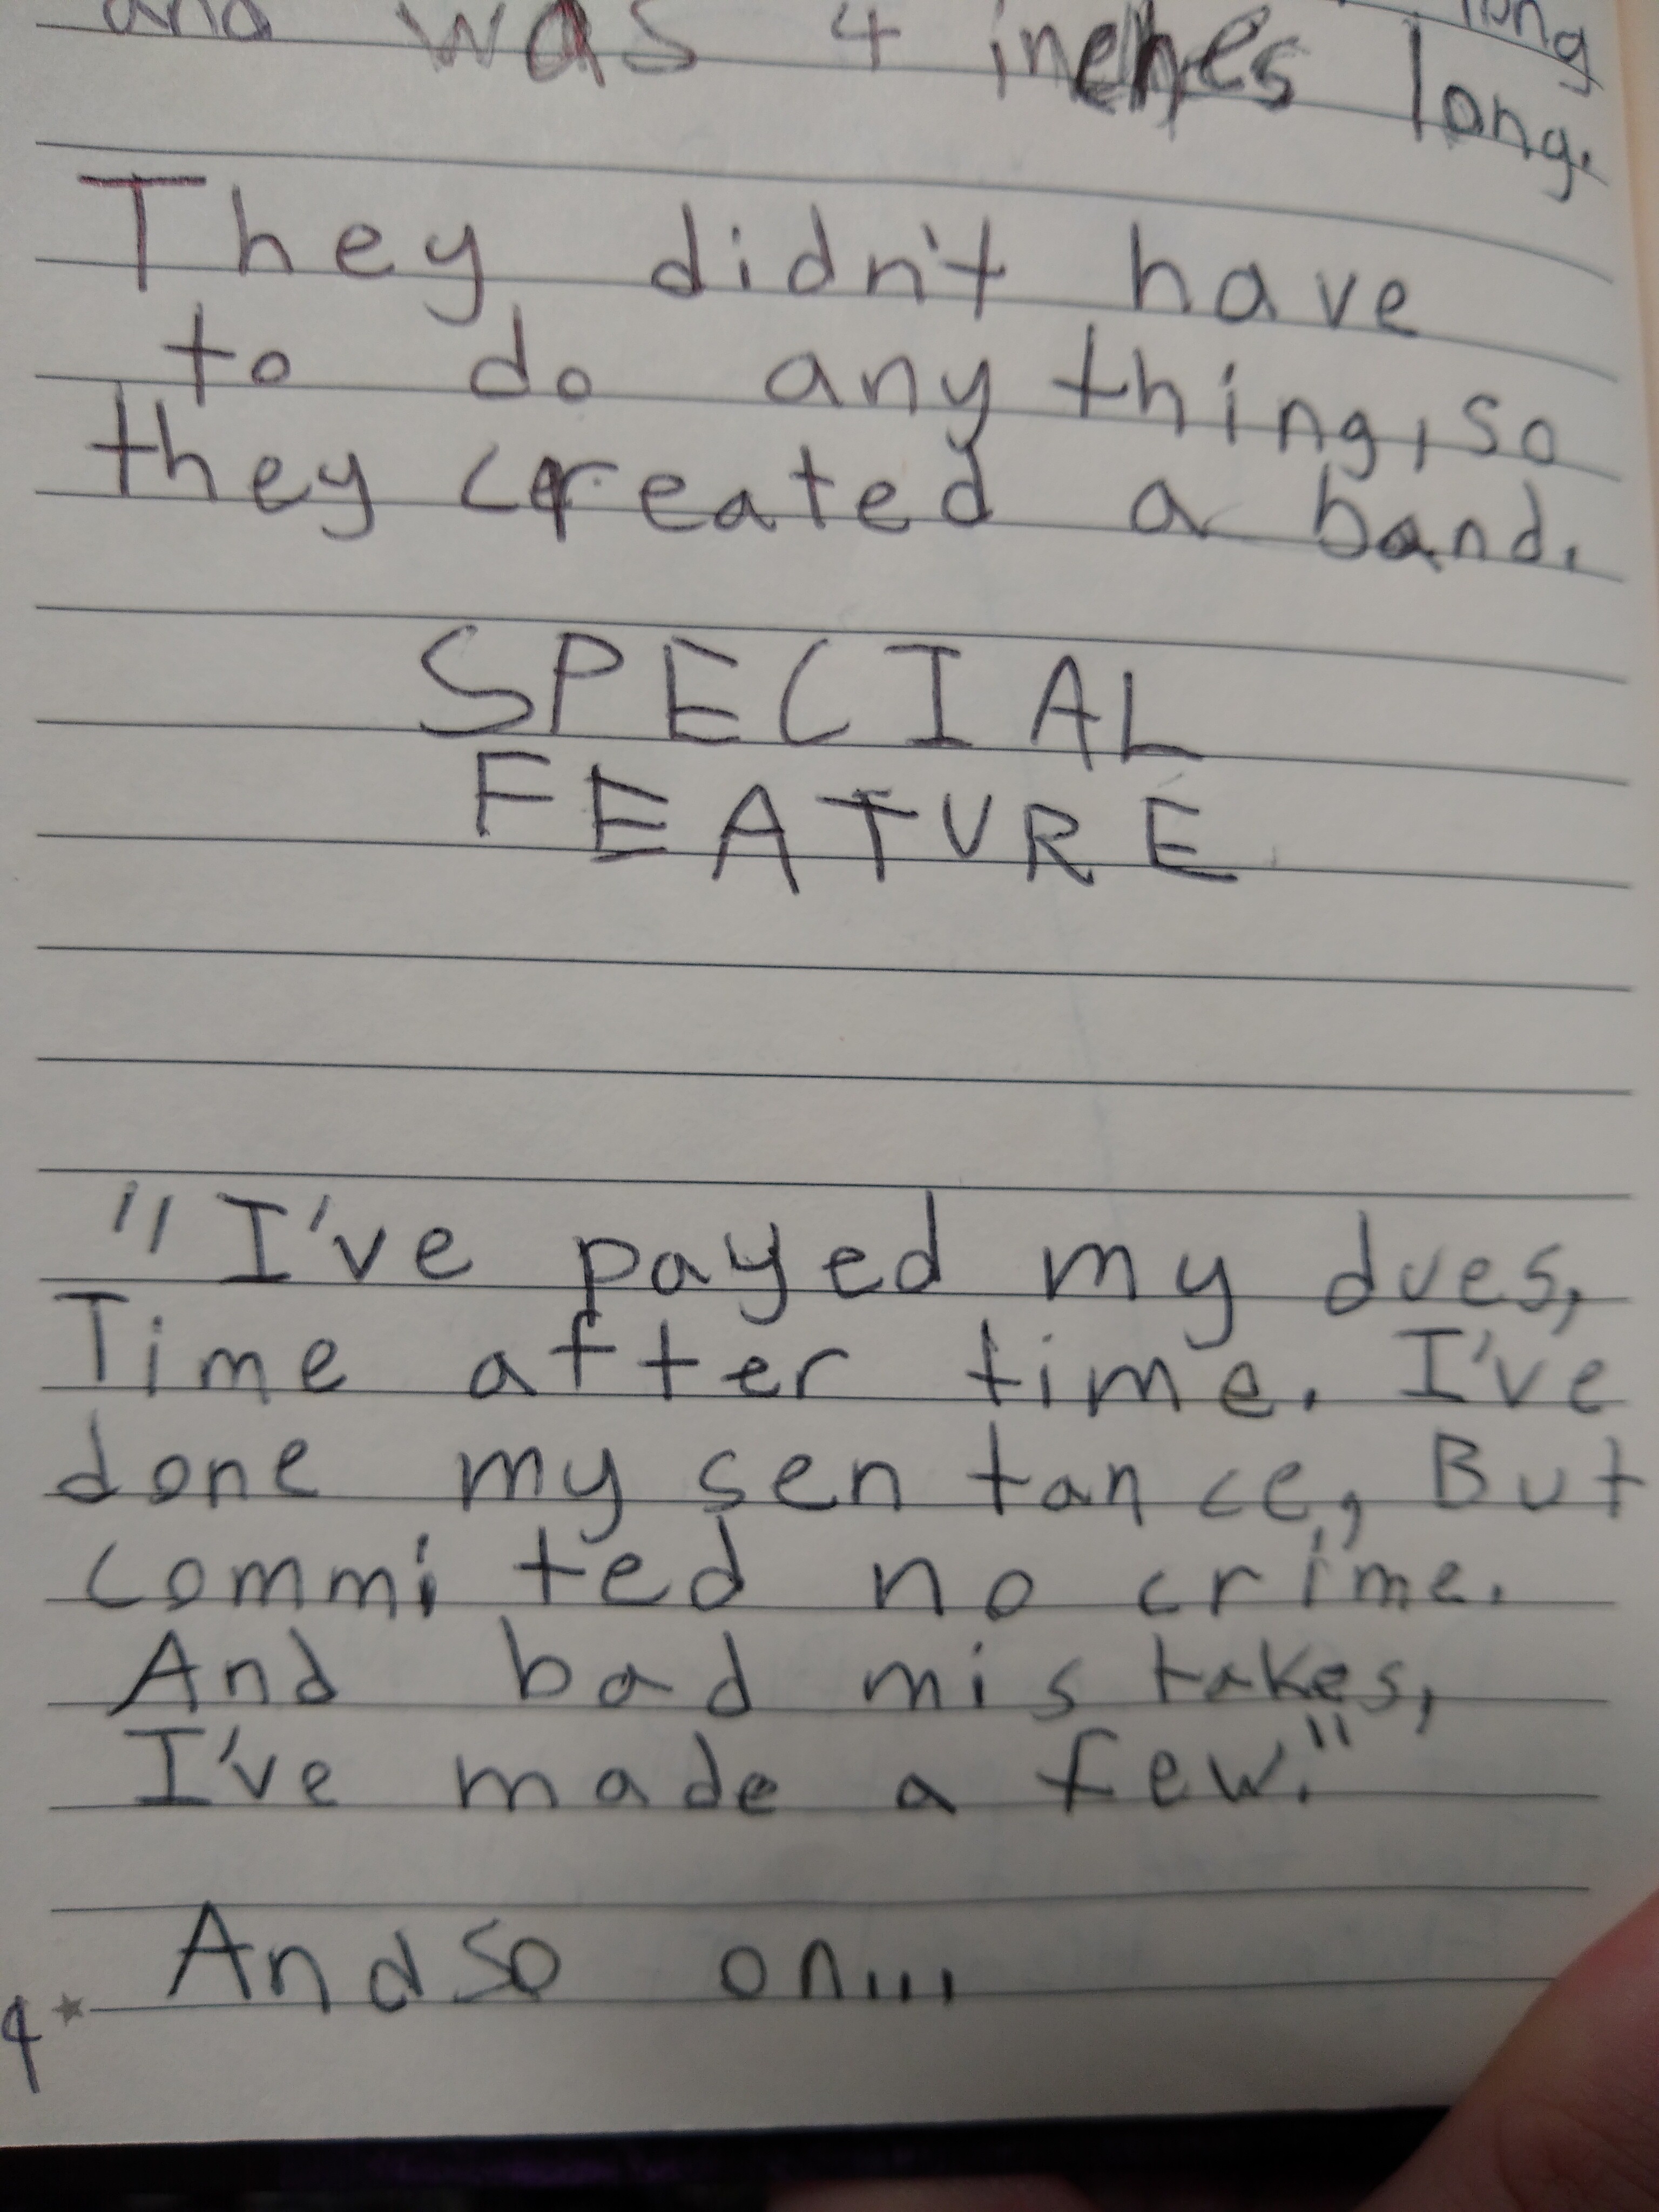 long
and was 4 inches long.
They didn't have
to do anything, so
they created a band.
SPECIAL
FEATURE
"I've payed my dues,
Time after time. I've
done my sentance, But
commited no crime.
And bad mistakes,
I've made a few."
And so on...
9